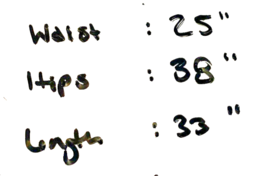 Waist : 25"
Hips : 38"
Length : 33"